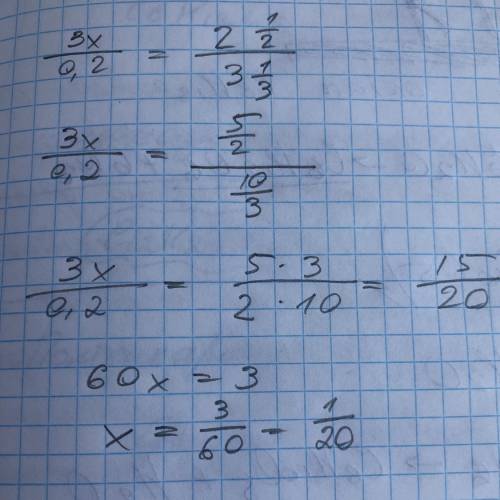 3x/0,2 = 2 1/2 / 3 1/3
3x/0,2 = 5/2 / 10/3
3x/0,2 = 5·3/2·10 = 15/20
60x = 3
x = 3/60 - 1/20